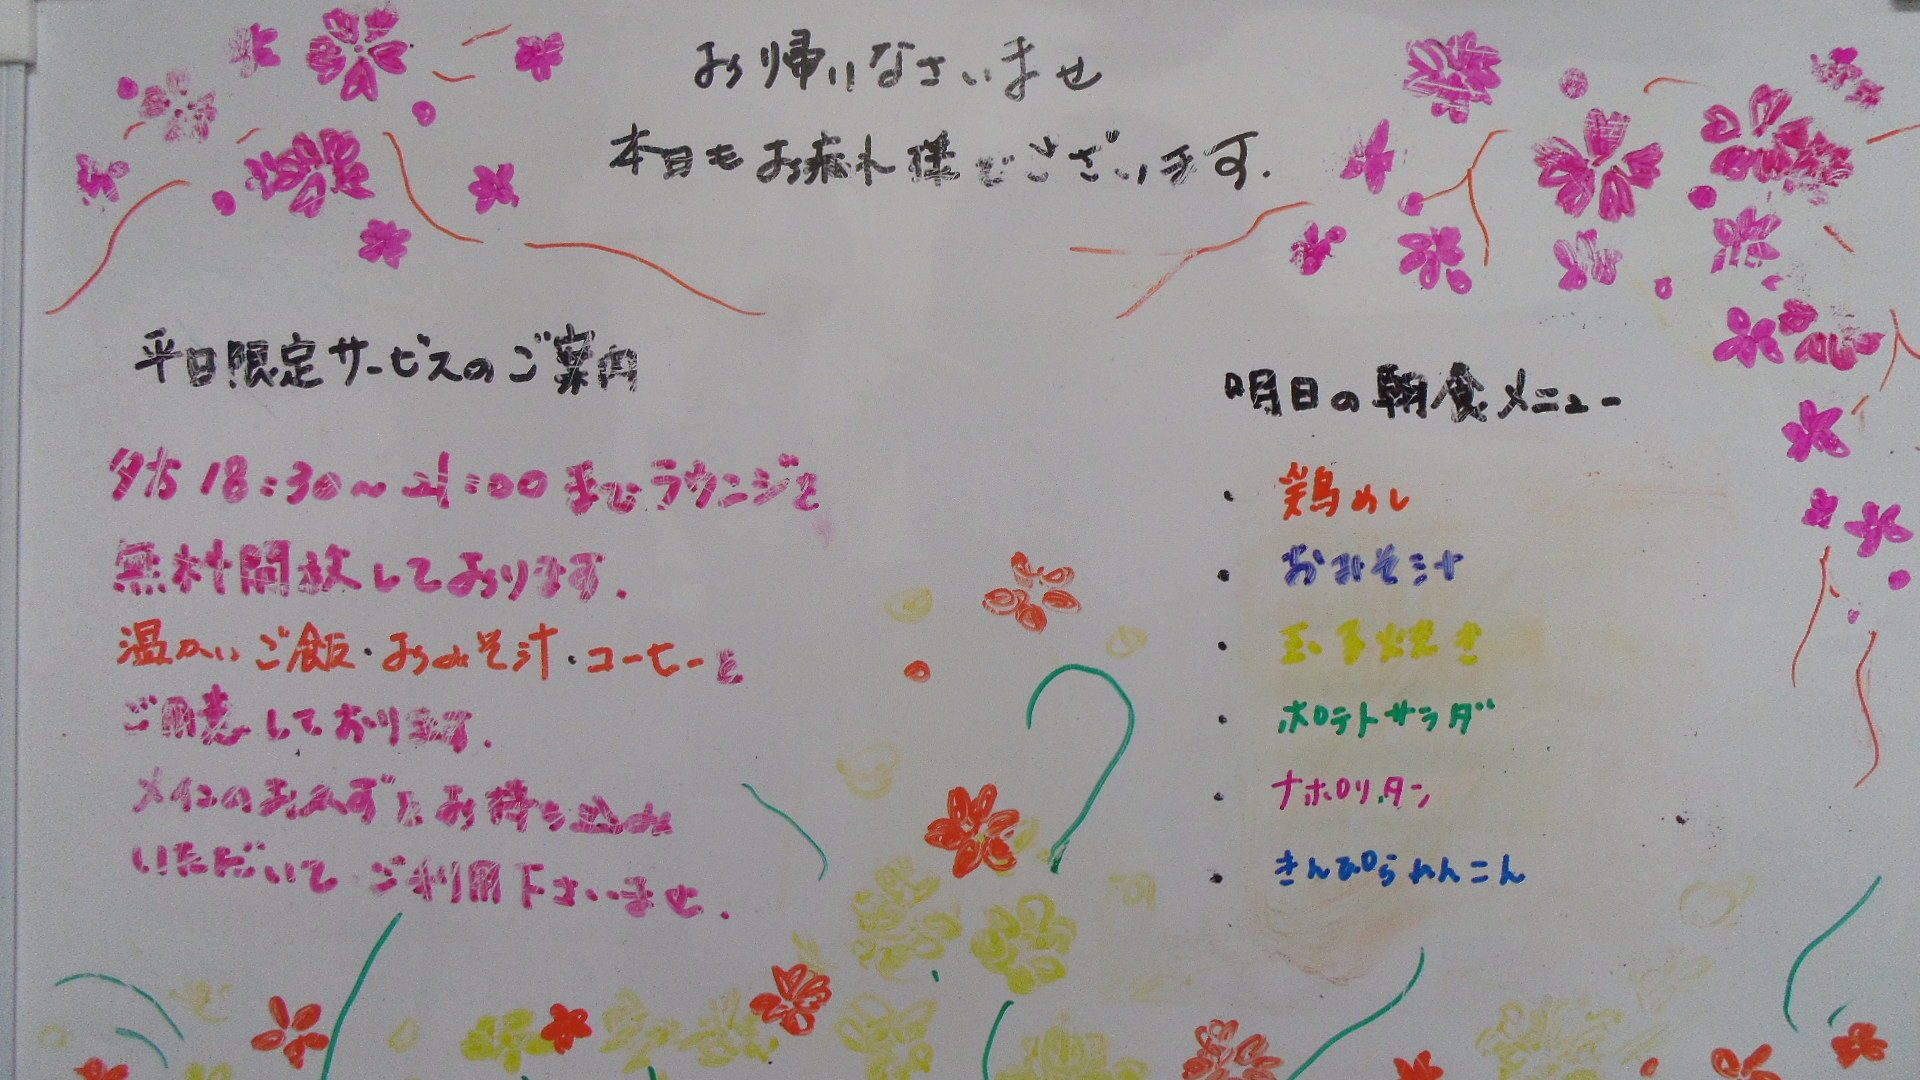 お帰りなさいませ
本日もお疲れ様でございます.
平日限定サービスのご案内
夕方18:30〜21:00までラウンジを
無料開放しております.
温かいご飯・おみそ汁・コーヒーを
ご用意しております.
メインのおかずをお持ち込み
いただいてご利用下さいませ.
明日の朝食メニュー
・鶏めし
・おみそ汁
・玉子焼き
・ポテトサラダ
・ナポリタン
・きんぴられんこん